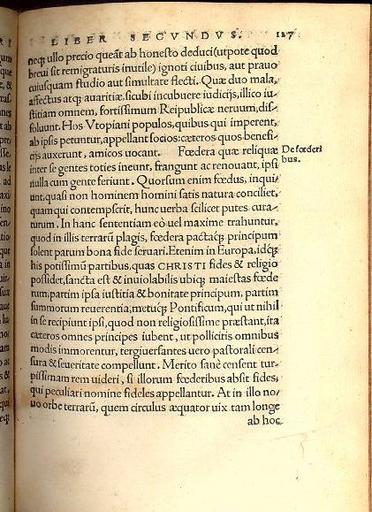 LIBER SECVNDVS. 127
neq; ullo precio queāt ab honesto deduci (utpote quod
breui sit remigraturis inutile) ignoti ciuibus, aut prauo
cuiusquam studio aut simultate flecti. Quæ duo mala,
affectus atq; auaritiæ, sicubi incubuere iudicijs, illico iu-
stitiam omnem, fortissimum Reipublicæ neruum, dis-
soluunt. Hos Vtopiani populos, quibus qui imperent,
ab ipsis petuntur, appellant socios: cæteros quos benefi-
cijs auxerunt, amicos uocant. Fœdera quæ reliquæ
De fœderi
bus.
inter se gentes toties ineunt, frangunt ac renouant, ipsi
nulla cum gente feriunt. Quorsum enim fœdus, inqui
unt, quasi non hominem homini satis natura conciliet,
quam qui contempserit, hunc uerba scilicet putes cura-
turum. In hanc sententiam eò uel maxime trahuntur,
quod in illis terrarū plagis, fœdera pactaq; principum
solent parum bona fide seruari. Etenim in Europa, idq;
his potissimū partibus, quas CHRISTI fides & religio
possidet, sancta est & inuiolabilis ubiq; maiestas fœde-
rum, partim ipsa iustitia & bonitate principum, partim
summorum reuerentia, metuq; Pontificum, qui ut nihil
in se recipiunt ipsi, quod non religiosissime præstant, ita
cæteros omnes principes iubent, ut pollicitis omnibus
modis immorentur, tergiuersantes uero pastorali cen-
sura & seueritate compellunt. Merito sanè censent tur-
pissimam rem uideri, si illorum fœderibus absit fides,
qui peculiari nomine fideles appellantur. At in illo no-
uo orbe terrarū, quem circulus æquator uix tam longe
ab hoc